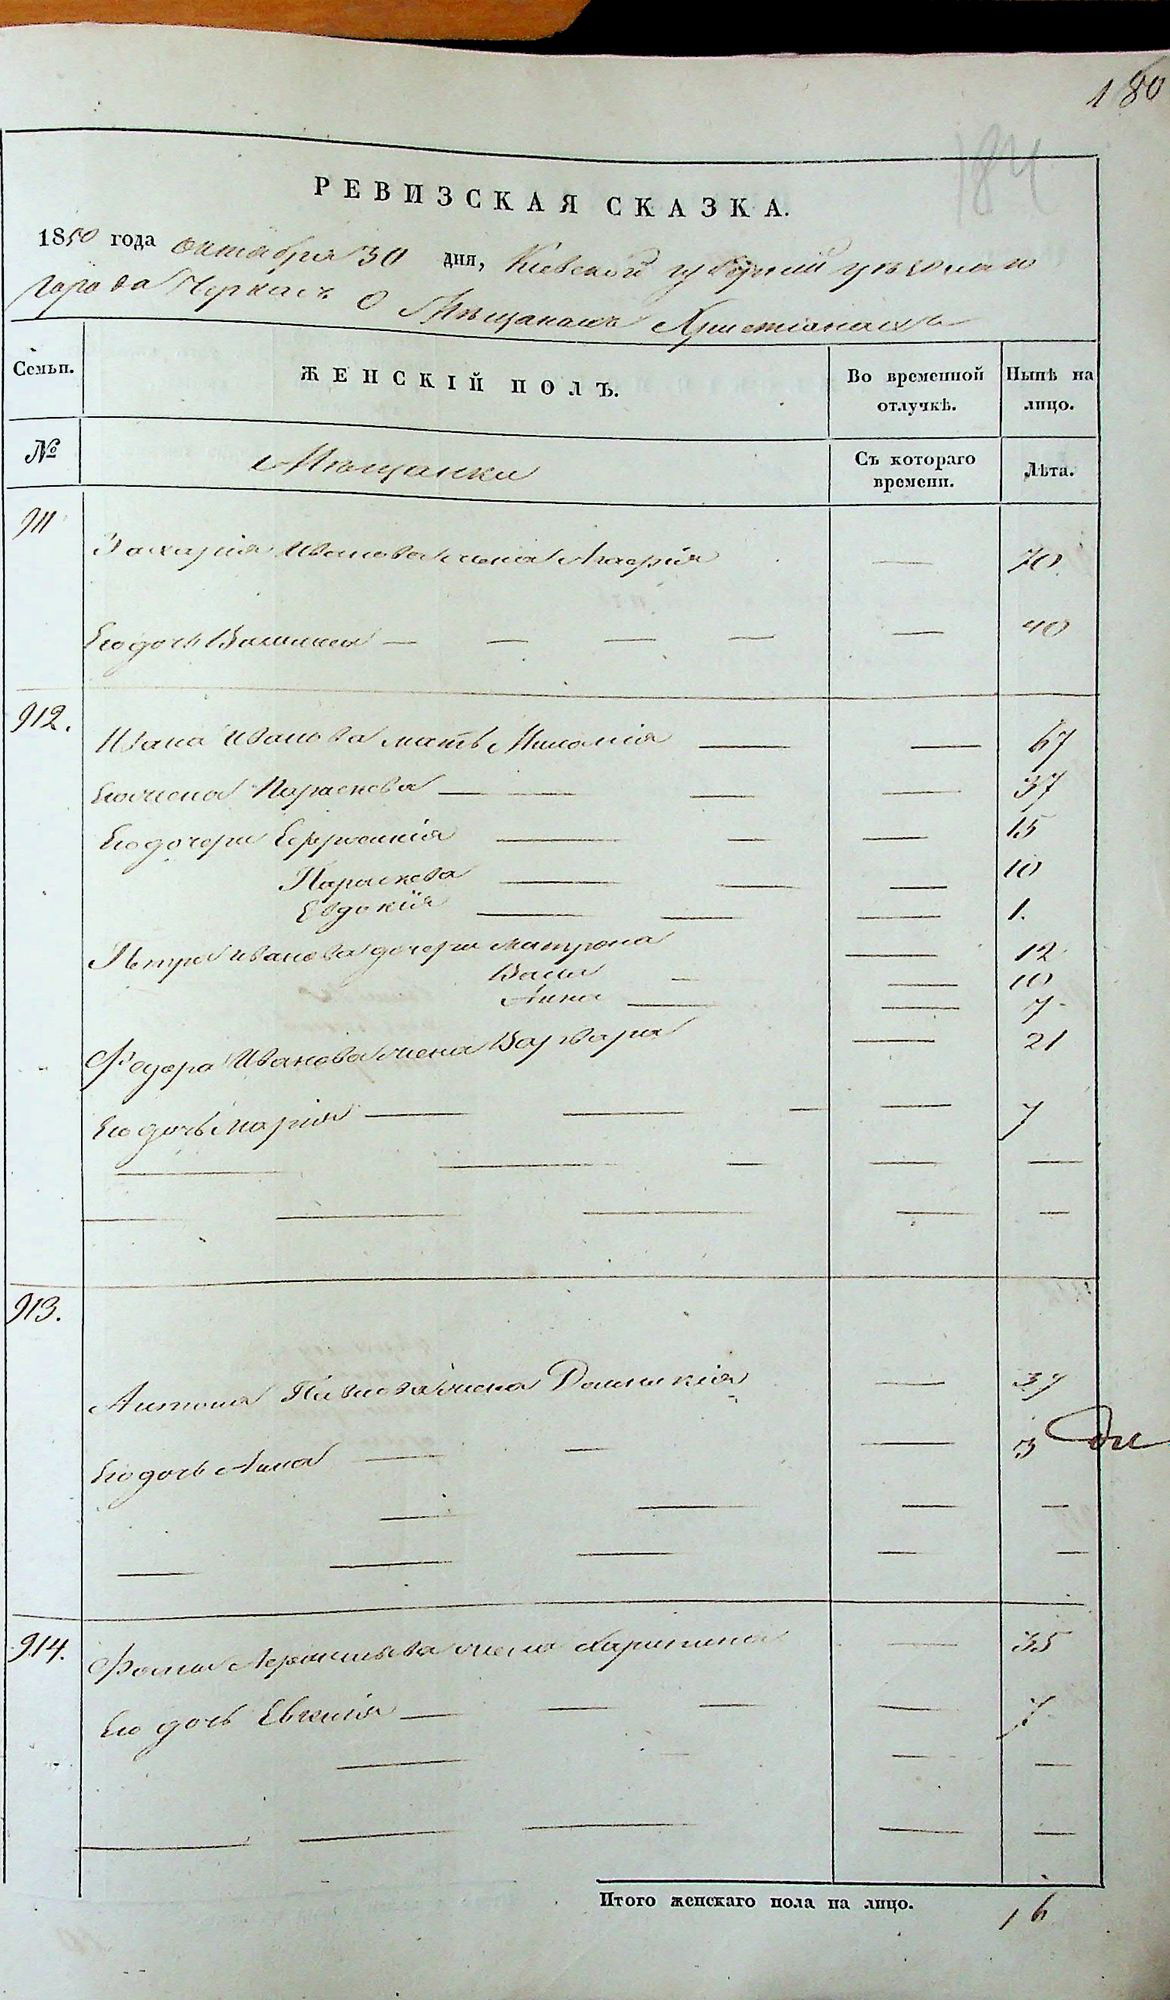 180
184
РЕВИЗСКАЯ СКАЗКА.
1850 года октября 30 дня, Кіевской губерніи уѣзднаго
города Черкасъ О Мѣщанахъ Христіанахъ
Семьи. ЖЕНСКІЙ ПОЛЪ. Во временной отлучкѣ. Нынѣ на лицо.
№ Мѣщанки Съ котораго времени. Лѣта.
911
Захарія Иванова жена Агафія — 70
Его дочь — — — — — 40
912.
Ивана Иванова мать Меланія — — 67
Его жена Параскева — — — — — 37
Его дочери Ефросинія — — — 15
Параскева — — — 10
Евдокія — — — 1.
Петра Иванова дочери Матрона — 12
Васса — — 10
Анна — — 7
Федора Иванова жена Варвара — 21
Его дочь Марія — — — — 7
— — — — —
— — — — —
913.
Антона Павлова жена Домникія — 37
Его дочь Анна — — — 3
— — — —
— — — — —
914.
Фомы жена — 35
Его дочь Евгенія — — — — 7
— — — —
— — — — —
Итого женскаго пола на лицо. 16